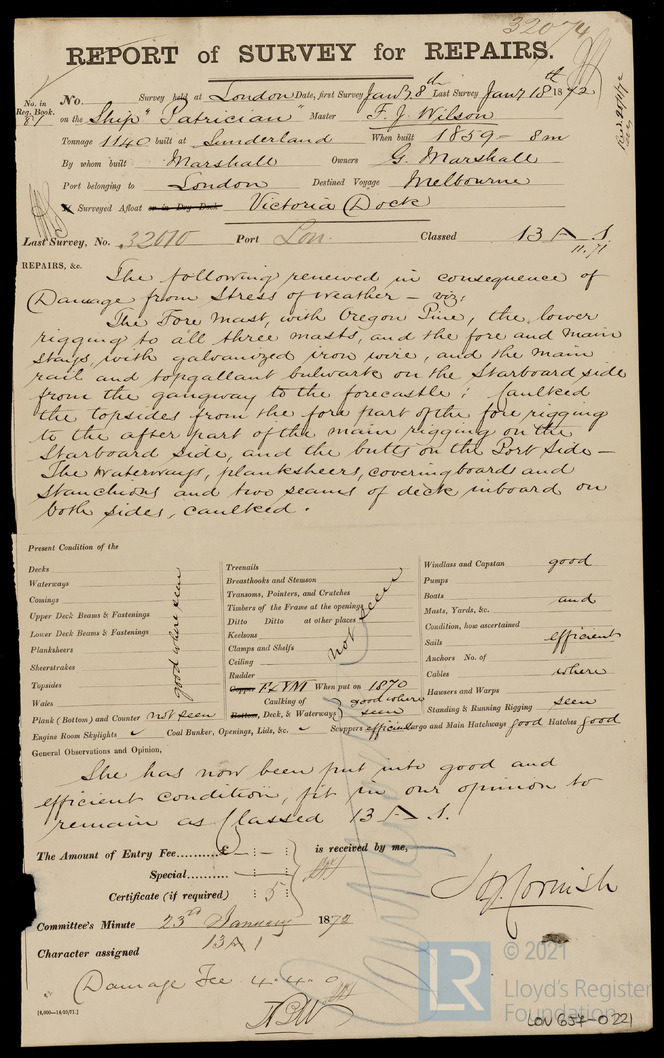 32074
REPORT of SURVEY for REPAIRS.
No. in Reg. Book.
No. Survey held at London Date, first Survey Jany 8th Last Survey Jany 18th 1872
on the Ship "Patrician" Master F. J. Wilson
Tonnage 1140 built at Sunderland When built 1859 - 8m
By whom built Marshall Owners G. Marshall
Port belonging to London Destined Voyage Melbourne
Surveyed Afloat or in Dry Dock Victoria Dock
Last Survey, No. 32010 Port Lon. Classed 13 A 1.
11.71
REPAIRS, &c.
The following renewed in consequence of
Damage from Stress of Weather - viz;
The Fore Mast, with Oregon Pine, the lower
rigging to all three masts, and the fore and main
stays, with galvanized iron wire, and the main
rail and topgallant bulwark on the Starboard side
from the gangway to the forecastle; Caulked
the topsides from the fore part of the fore rigging
to the after part of the main rigging on the
Starboard side, and the butts on the Port side -
The Waterways, planksheers, covering boards and
Stanchions and two seams of deck inboard on
both sides, caulked.
Present Condition of the
Decks
Waterways
Comings
Upper Deck Beams & Fastenings
Lower Deck Beams & Fastenings
Planksheers
Sheerstrakes
Topsides
Wales
good where seen
Plank (Bottom) and Counter not seen
Treenails
Breasthooks and Stemson
Transoms, Pointers, and Crutches
Timbers of the Frame at the openings
Ditto Ditto at other places
Keelsons
Clamps and Shelfs
Ceiling
Rudder
not seen
Copper F & YM When put on 1870
Caulking of Bottom, Deck, & Waterways good where seen
Windlass and Capstan good
Pumps
Boats and
Masts, Yards, &c.
Condition, how ascertained
Sails efficient
Anchors No. of
Cables where
Hawsers and Warps
Standing & Running Rigging seen
Engine Room Skylights ✓ Coal Bunker, Openings, Lids, &c. ✓ Scuppers efficient Cargo and Main Hatchways good Hatches good
General Observations and Opinion,
She has now been put into good and
efficient condition, fit in our opinion to
remain as Classed 13 A 1.
The Amount of Entry Fee..........£ : - : is received by me,
Special.......... : - :
Certificate (if required) : 5 :
Cornish
Committee's Minute 23rd January 1872
Character assigned 13 A 1
Damage Fee 4.4.0
[4,000-14/10/71.]
LR
© 2021
Lloyd's Register
Foundation
LON 654-0221